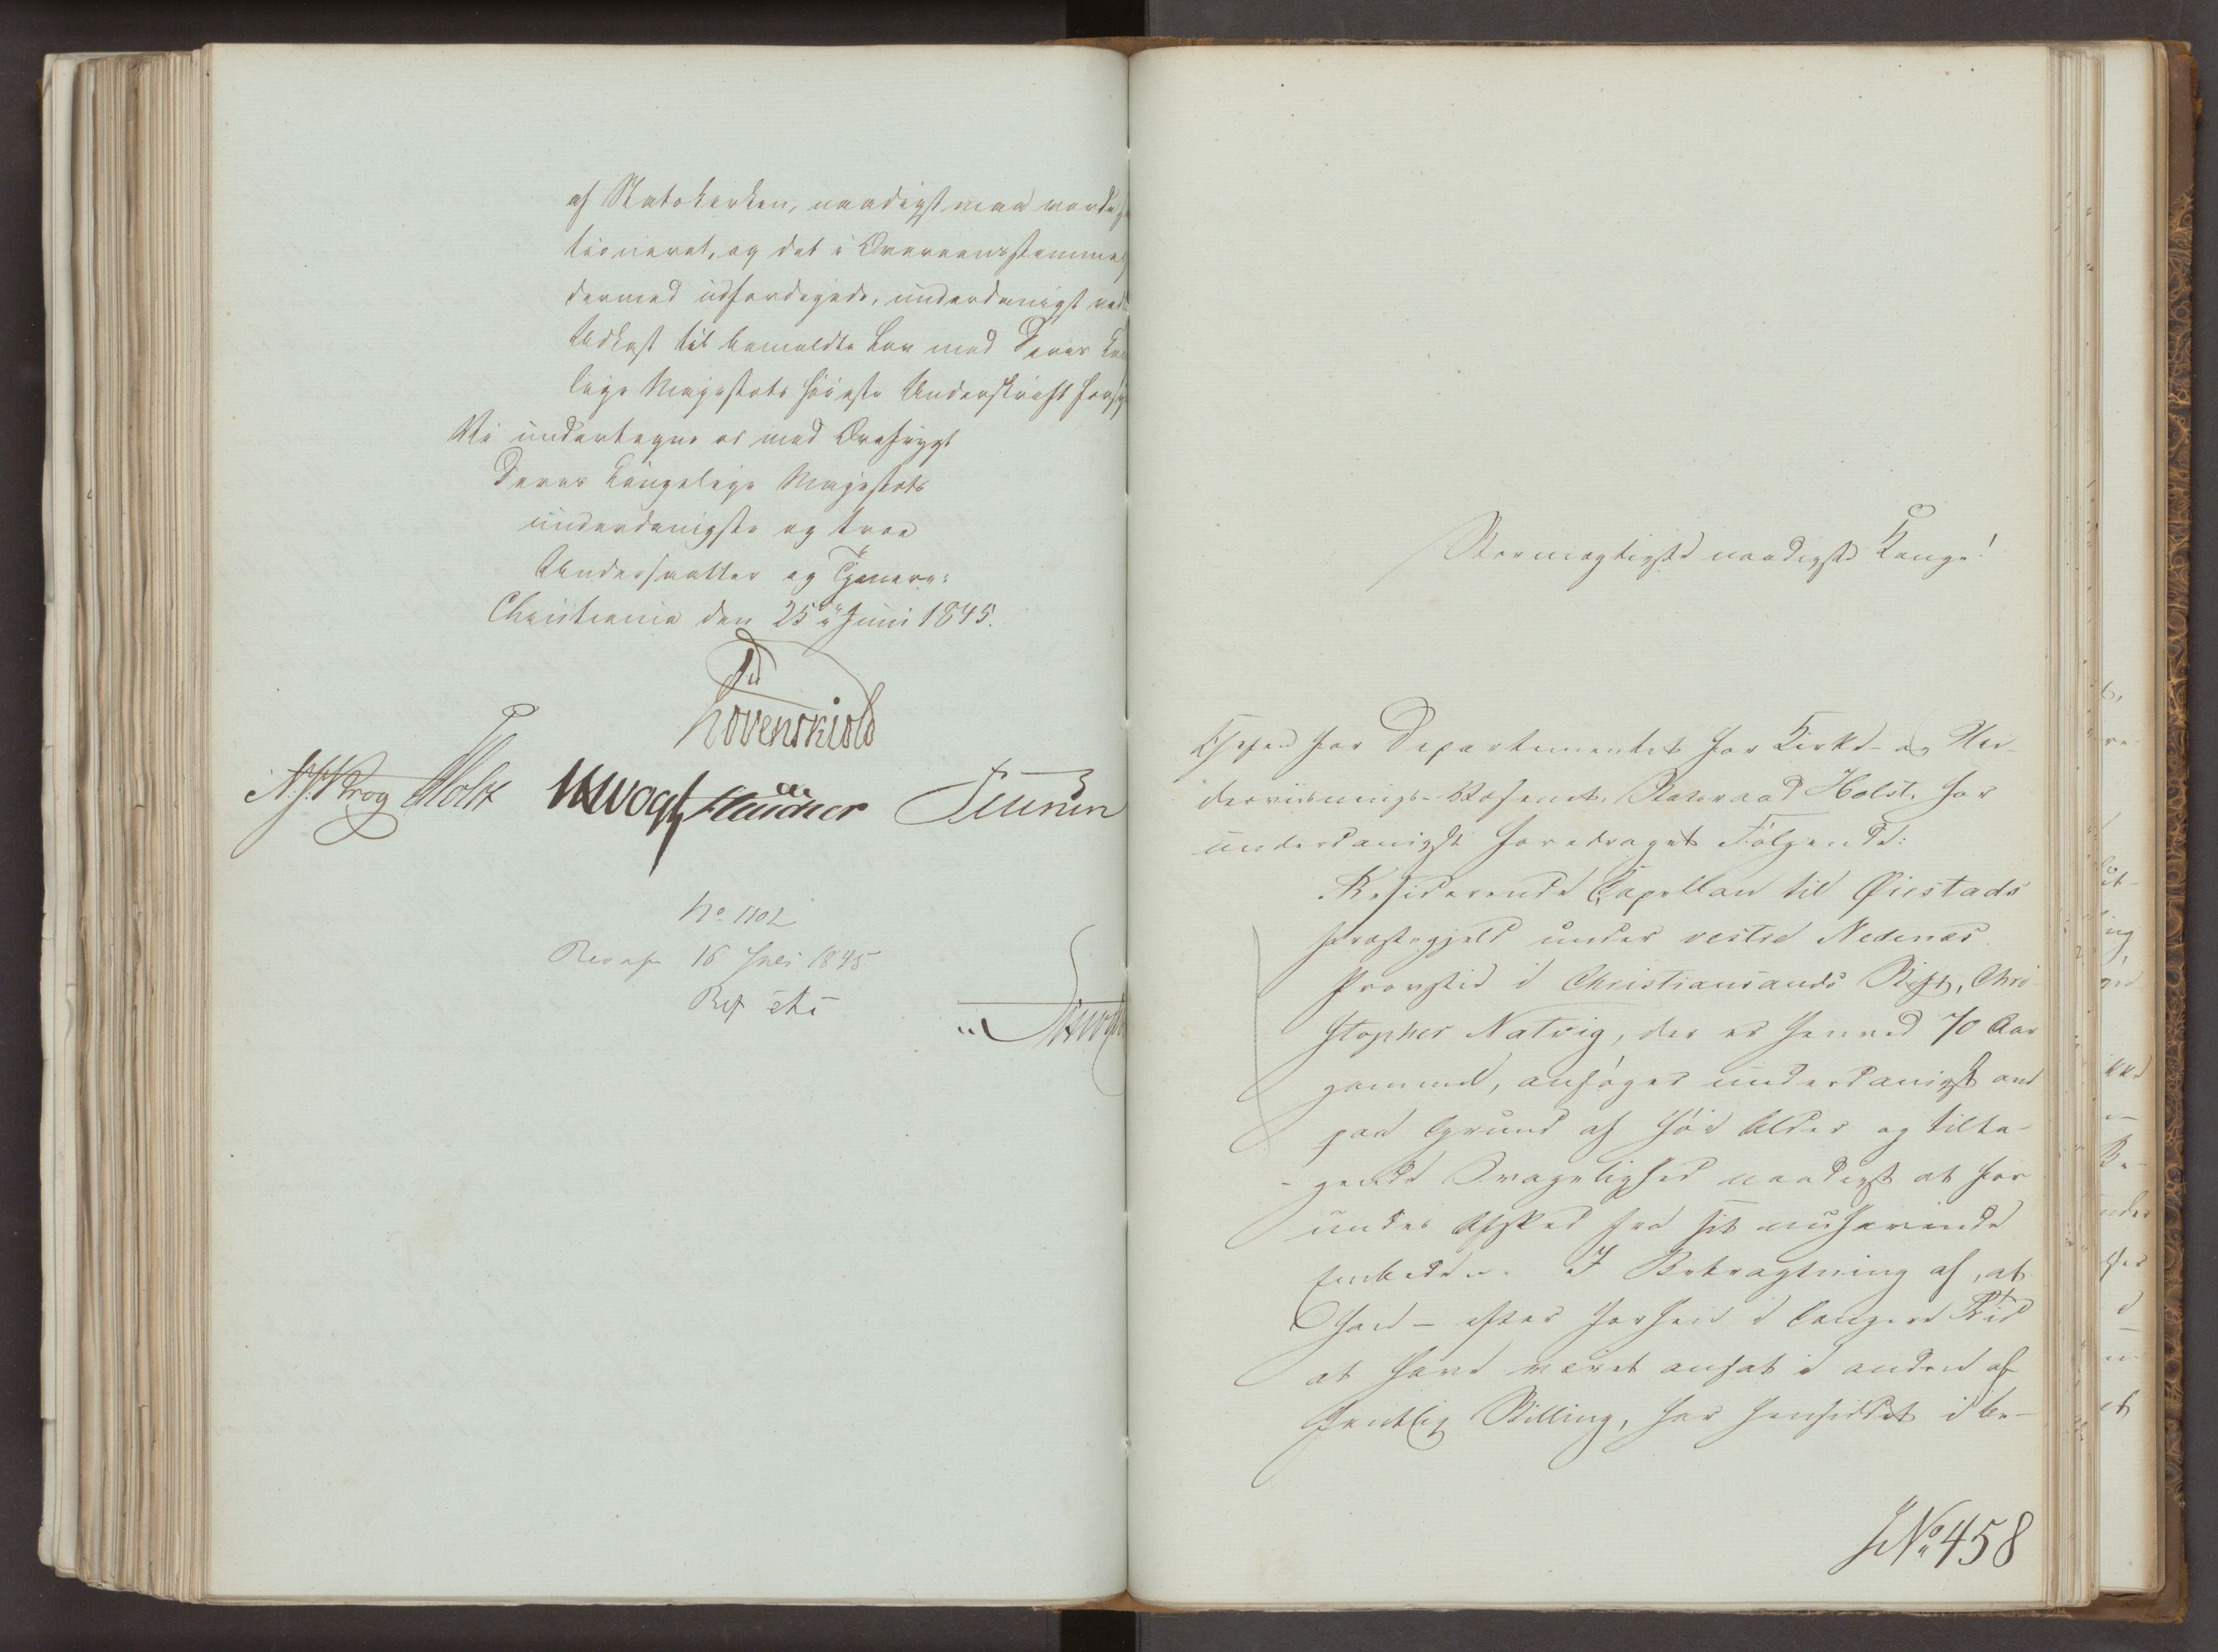 af Statskirken, naadigst maa vorde
tioneret, og det i Overeensstemmel
dermed udfærdigede, underdanigst ved
Udkast til bemeldte Lov med Deres Kon
lige Majestæts høieste Underskrift forsy
Vi undertegne os med Ærefrygt
Deres Kongelige Majestæts
underdanigste og troe
Undersaatter og Tjenere:
Christiania den 25 Juni 1845.
Løvenskiold
N. J. Krog Holst Vogt
No 1702
Resol 16 Juli 1845
Stormægtigste naadigste Konge!
Chefen for Departementet for Kirke- og Un-
derviisnings-Væsenet, Statsraad Holst, har
underdanigst foredraget Følgende:
Residerende Capellan til Øiestads
Præstegjeld under vestre Nedenæs
Provstie i Christiansands Stift, Chri-
stopher Natvig, der er henved 70 Aar
gammel, ansøger underdanigst om
paa Grund af høi Alder og tilta-
-gende Svagelighed naadigst at for
undes Afsked fra sit nuhavende
Embede. I Betragtning af, at
han - efter forhen i længere Tid
at have været ansat i anden of
fentlig Stilling, har hensiddet i be-
JNo 458